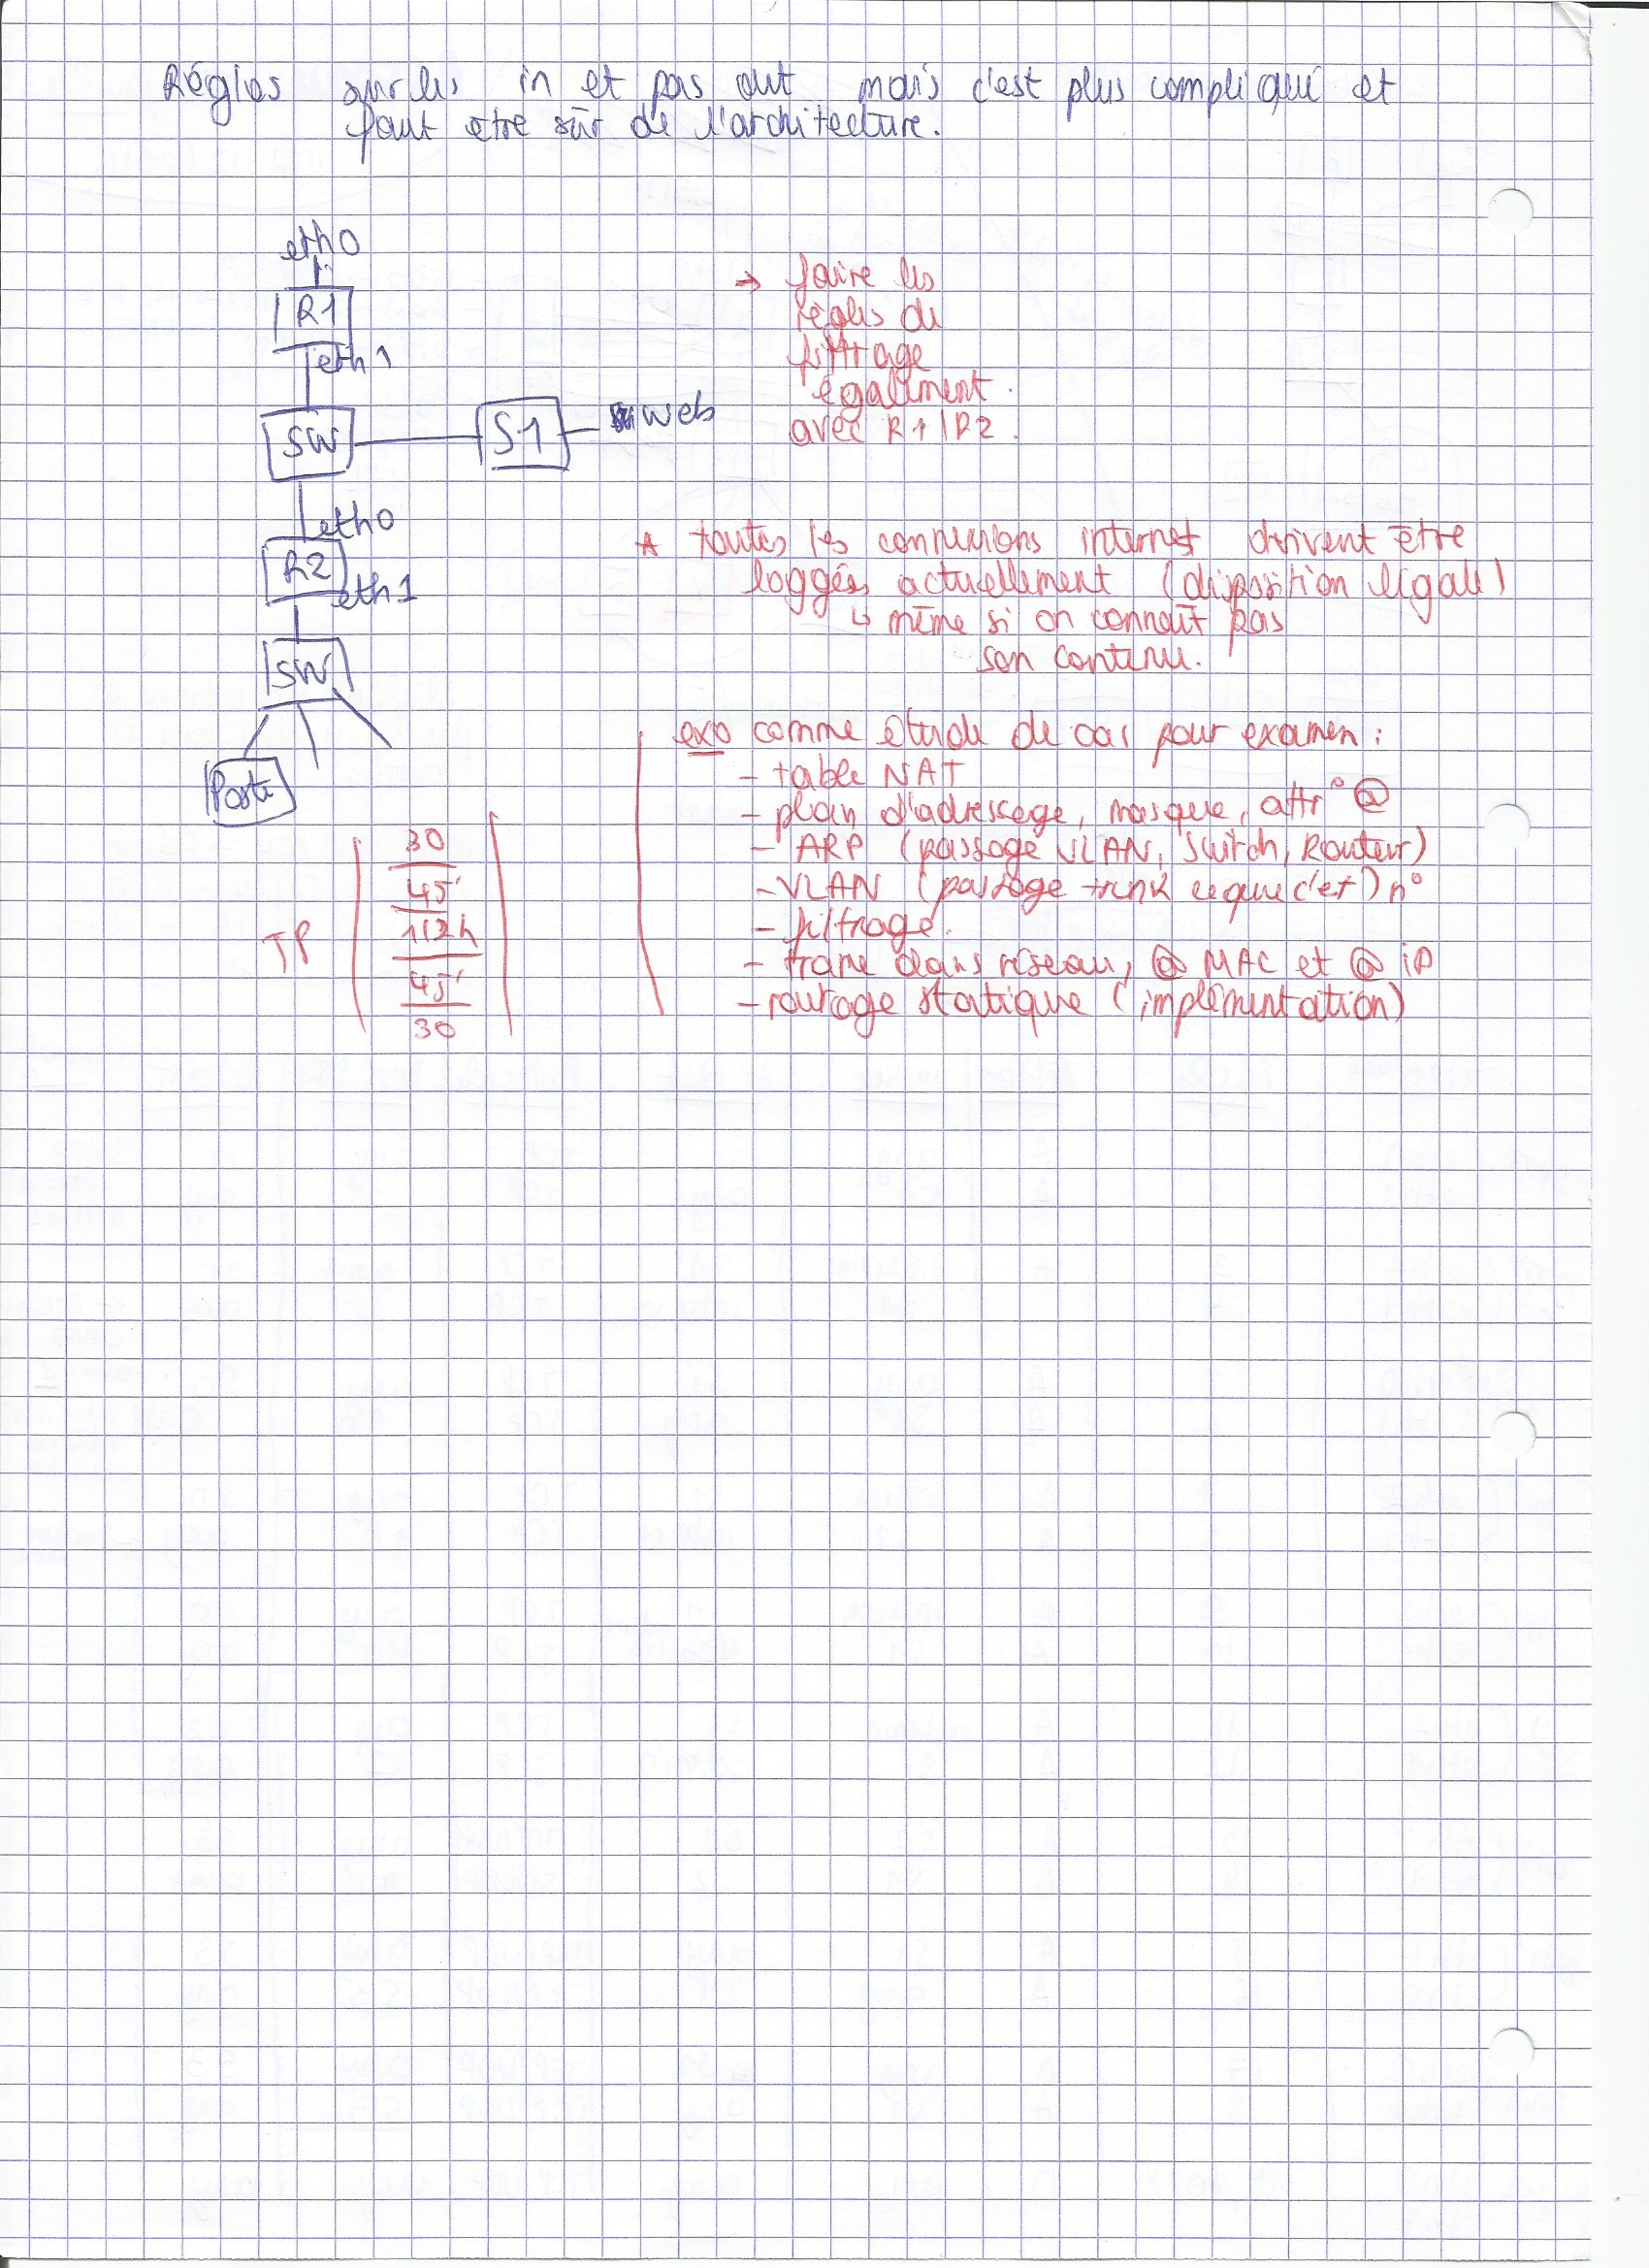 Régles sur les in et pas out mais c'est plus compliqué et
faut etre sûr de l'architecture.
eth0
R1
eth1
SW
S1
web
eth0
R2
eth1
SW
Poste
→ faire les
règles de
filtrage
également.
avec R1/R2.
* toutes les connexions internet doivent être
loggées actuellement (disposition légale)
↳ même si on connaît pas
son contenu.
exo comme étude de cas pour examen :
- table NAT
- plan d'adressage, masque, attr° @
- ARP (passage VLAN, Switch, Routeur)
- VLAN (passage trunk ce que c'est) n°
- filtrage.
- trame dans réseau, @ MAC et @ iP
- routage statique (implémentation)
TP
30
45'
1/2h
45'
30